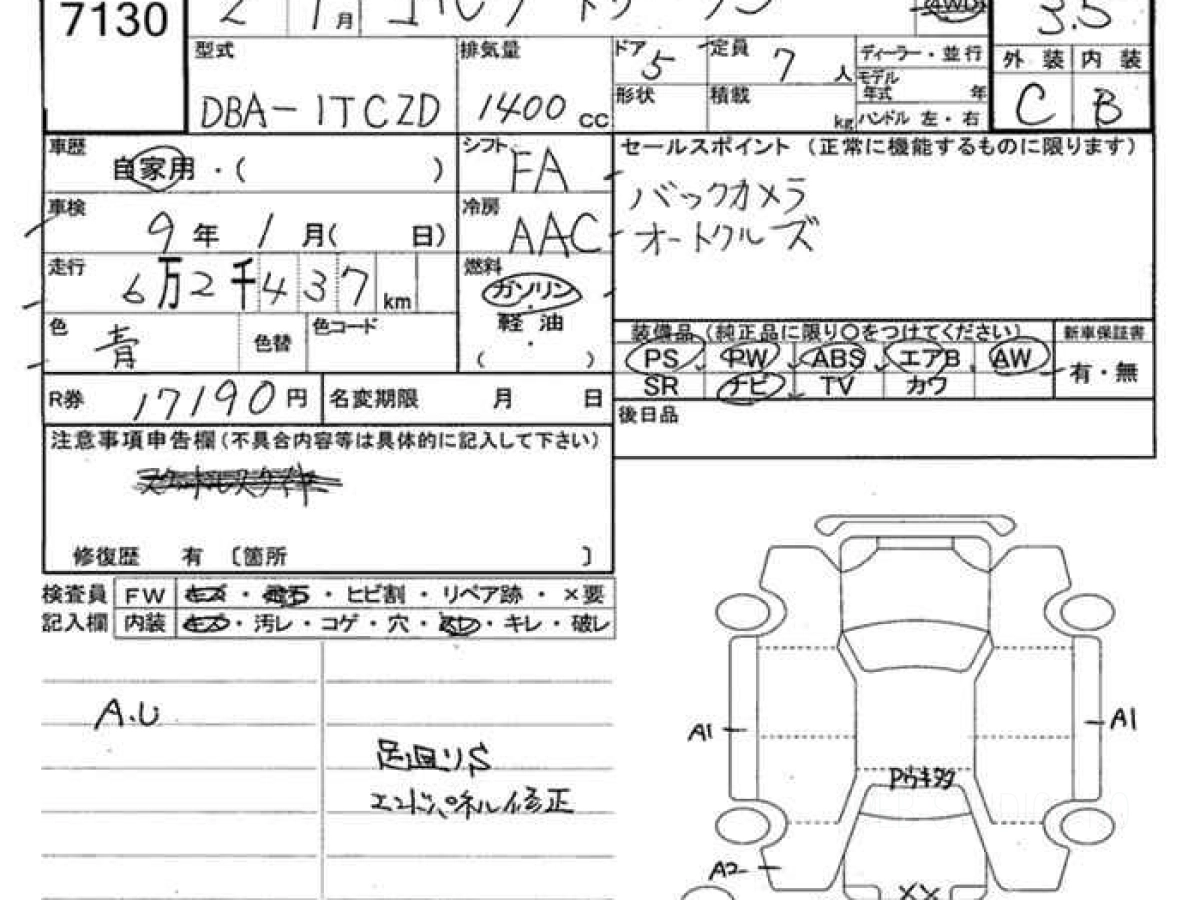 7130
2 1月
4WD
3.5
型式 排気量 ドア 5 定員 7 人 ディーラー・並行
モデル年式 年
外装 内装
DBA-1TCZD 1400 cc
形状 積載 kg ハンドル 左・右
C B
車歴 自家用・( )
シフト FA
セールスポイント（正常に機能するものに限ります）
バックカメラ
オートクルーズ
車検 9年 1月( 日)
冷房 AAC
走行 6万2千437km
燃料 ガソリン・軽油・( )
色 青 色替 色コード
装備品（純正品に限り○をつけてください） 新車保証書
PS PW ABS エアB AW 有・無
SR ナビ TV カワ
R券 17190円 名変期限 月 日
後日品
注意事項申告欄（不具合内容等は具体的に記入して下さい）
修復歴 有 〔箇所 〕
検査員 FW キズ・飛石・ヒビ割・リペア跡・×要
記入欄 内装 キズ・汚レ・コゲ・穴・スレ・キレ・破レ
A.U
足回りS
エンドパネル修正
A1
A1
Pウキ多
A2
XX